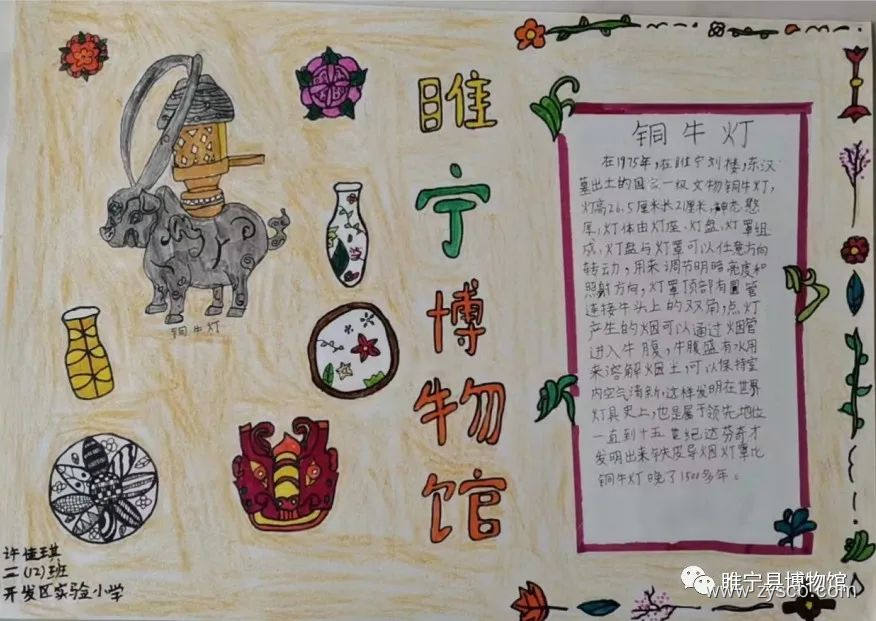 睢
宁
博
物
馆
铜牛灯
铜牛灯
在1975年,在睢宁刘楼,东汉
墓出土的国家一级文物铜牛灯,
灯高26.5厘米长21厘米,神态憨
厚,灯体由灯座、灯盘、灯罩组
成,灯盘与灯罩可以任意方向
转动,用来调节明暗亮度和
照射方向,灯罩顶部有置管
连接牛头上的双角,点灯
产生的烟可以通过烟管
进入牛腹,牛腹盛有水用
来溶解烟土,可以保持室
内空气清新,这样发明在世界
灯具史上,也是属于领先地位
一直到十五世纪达芬奇才
发明出来铁皮导烟灯罩比
铜牛灯晚了1500多年。
许佳琪
二(12)班
开发区实验小学
睢宁县博物馆
www.zysco.com